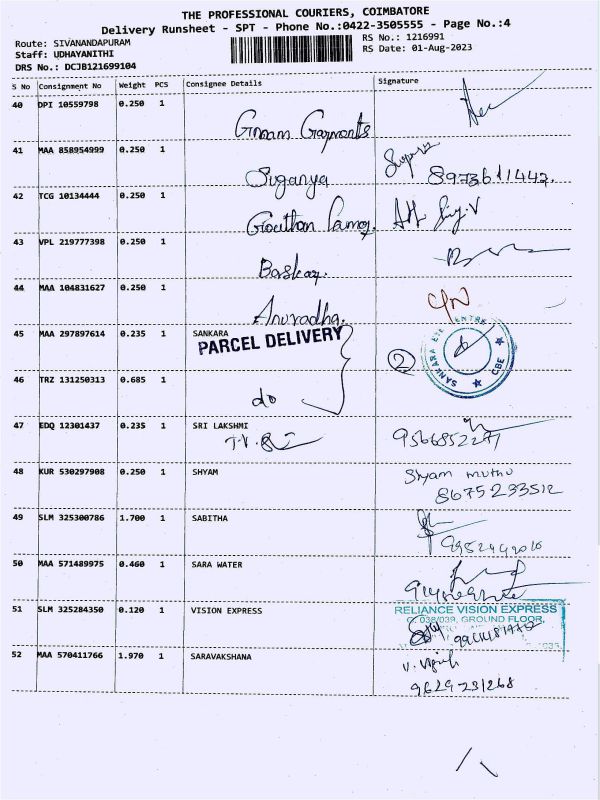 THE PROFESSIONAL COURIERS, COIMBATORE
Delivery Runsheet - SPT - Phone No.:0422-3505555 - Page No.:4
Route: SIVANANDAPURAM
RS No.: 1216991
Staff: UDHAYANITHI
RS Date: 01-Aug-2023
DRS No.: DCJB121699104
S No Consignment No Weight PCS Consignee Details Signature
40 DPI 10559798 0.250 1
41 MAA 858954999 0.250 1
Suganya 8973611442.
42 TCG 10134444 0.250 1
43 VPL 219777398 0.250 1
Baskar.
44 MAA 104831627 0.250 1
Anuradha.
45 MAA 297897614 0.235 1 SANKARA
PARCEL DELIVERY
2
SANKARA EYE CENTRE CBE
46 TRZ 131250313 0.685 1
do
47 EDQ 12301437 0.235 1 SRI LAKSHMI
48 KUR 530297908 0.250 1 SHYAM Shyam muthu
8675233512
49 SLM 325300786 1.700 1 SABITHA
50 MAA 571489975 0.460 1 SARA WATER
51 SLM 325284350 0.120 1 VISION EXPRESS RELIANCE VISION EXPRESS
038/039, GROUND FLOOR,
52 MAA 570411766 1.970 1 SARAVAKSHANA
9629731268